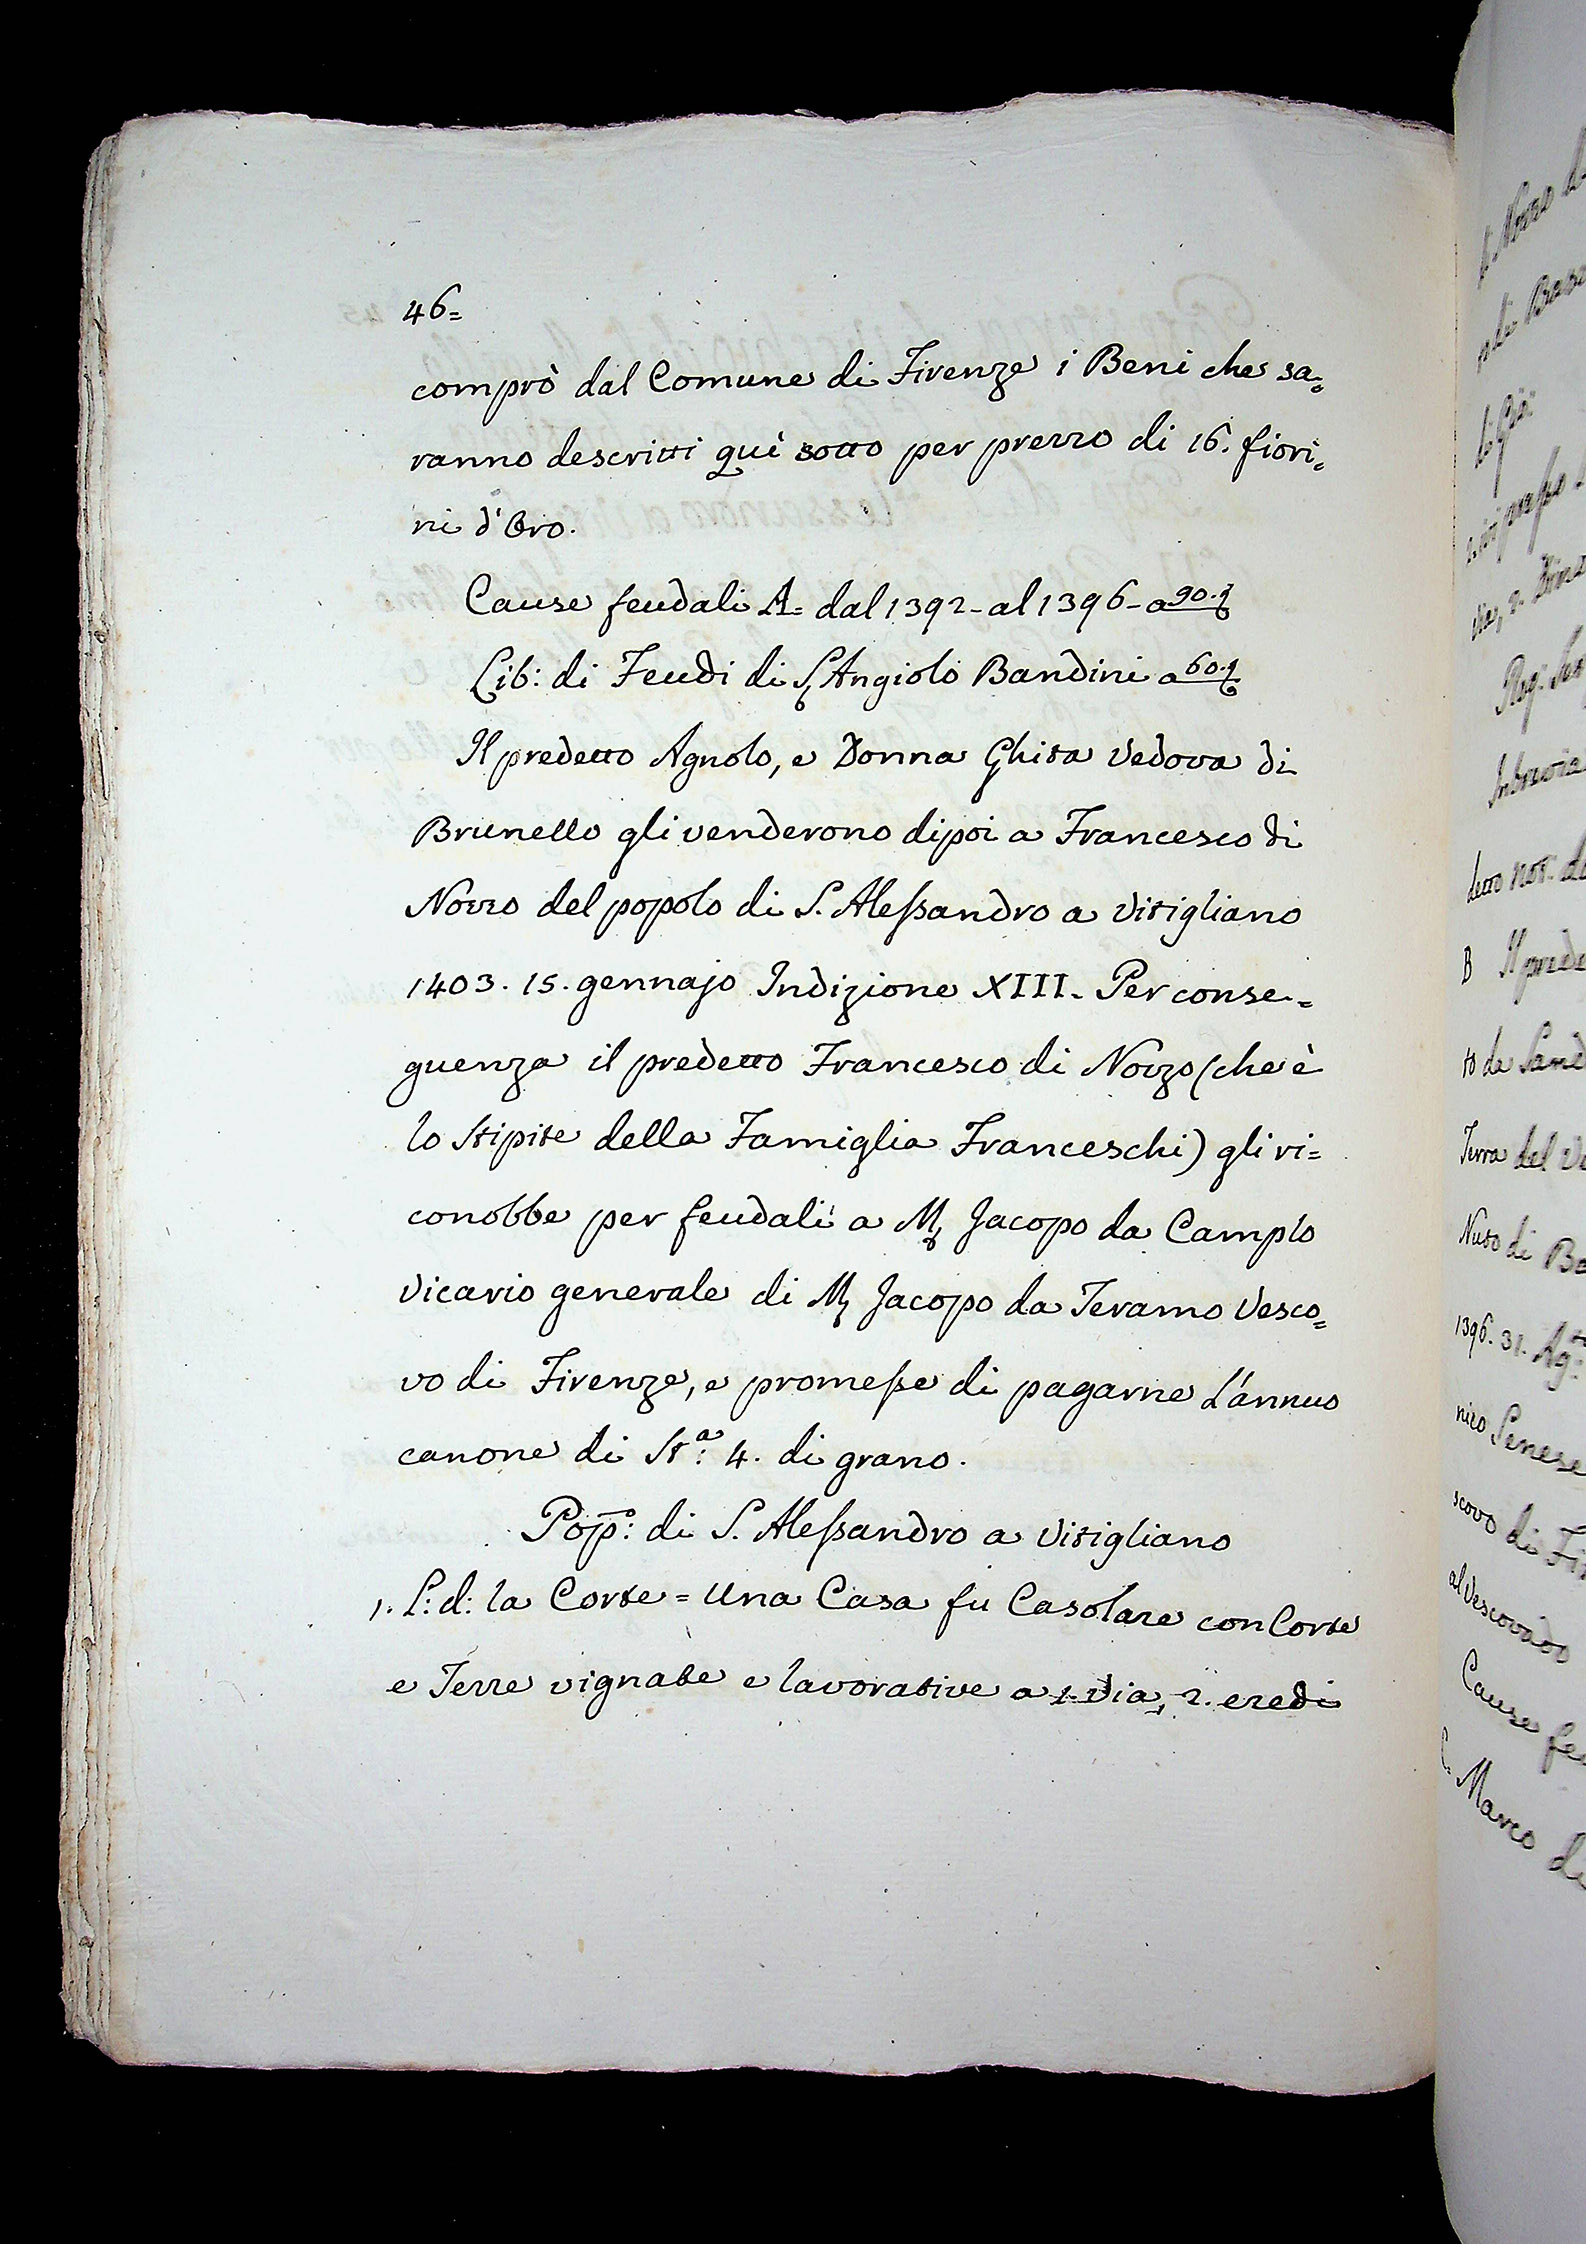 46=
comprò dal Comune di Firenze i Beni che sa=
ranno descritti quì sotto per prezzo di 16. fiori=
ni d'Oro.
Cause feudali A= dal 1392- al 1396- a 90.
Lib: di Feudi di S. Angiolo Bandini a 60.
Il predetto Agnolo, e Donna Ghita Vedova di
Brunello gli venderono dipoi a Francesco di
Nozzo del popolo di S. Alessandro a Vitigliano
1403. 15. gennajo Indizione XIII. Per conse=
guenza il predetto Francesco di Nozzo (che è
lo Stipite della Famiglia Franceschi) gli ri=
conobbe per feudali a M. Jacopo da Camplo
Vicario generale di M. Jacopo da Teramo Vesco=
vo di Firenze, e promesse di pagarne l'annuo
canone di Sta: 4. di grano.
Pop: di S. Alessandro a Vitigliano
1. L: d: la Corte = Una Casa fu Casolare con Corte
e Terre vignate e lavorative a 1. Via, 2. eredi
detto not. 
B Il prede
Terra del Ve
Nuto di Ba
1396. 31. Ag:
nico Senese
scovo di Fi
al Vescovado
Cause feu
C. Marco di